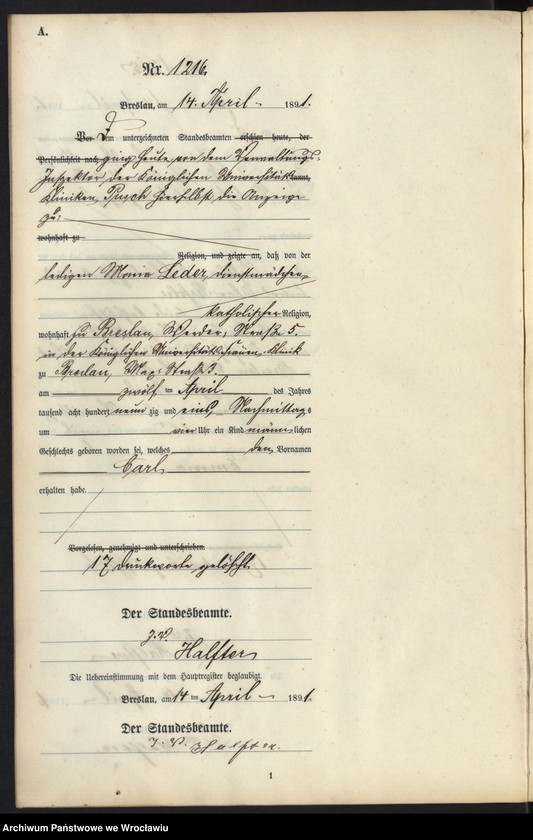 A.
Nr. 1216.
Breslau, am 14. April 1891.
Vor Dem unterzeichneten Standesbeamten erschien heute, der
Persönlichkeit nach ging heute von dem Verwaltungs-
Inspektor der Königlichen Universitäts kannt,
Kliniken, Pusch hierselbst die Anzeige
zu:
wohnhaft zu
Religion, und zeigte an, daß von der
ledigen Maria Leder, Dienstmädchen,
katholischer Religion,
wohnhaft zu Breslau, Werder-Straße 5.
in der Königlichen Universitäts-Frauen-Klinik
zu Breslau, Max-Straß 3.
am zwölf ten April des Jahres
tausend acht hundert neun zig und eins, Nachmittags
um vier Uhr ein Kind männlichen
Geschlechts geboren worden sei, welches den Vornamen
Carl
erhalten habe.
Vorgelesen, genehmigt und unterschrieben.
17 Druckworte gelöscht.
Der Standesbeamte.
J. V.
Halfter
Die Uebereinstimmung mit dem Hauptregister beglaubigt.
Breslau, am 14 ten April 1891.
Der Standesbeamte.
J. V. Halfter.
1
Archiwum Państwowe we Wrocławiu